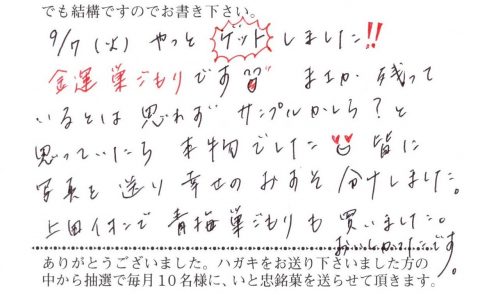 でも結構ですのでお書き下さい。
9/7(火) やっと ゲット しました!!
金運巣ごもりです まさか 残って
いるとは 思わず サンプルかしら?と
思っていたら 本物でした 皆に
写真を送り 幸せのおすそ分けしました。
上田イオンで 青梅巣ごもりも 買いました。
おいしかったです。
ありがとうございました。ハガキをお送り下さいました方の
中から抽選で毎月10名様に、いと忠銘菓を送らせて頂きます。